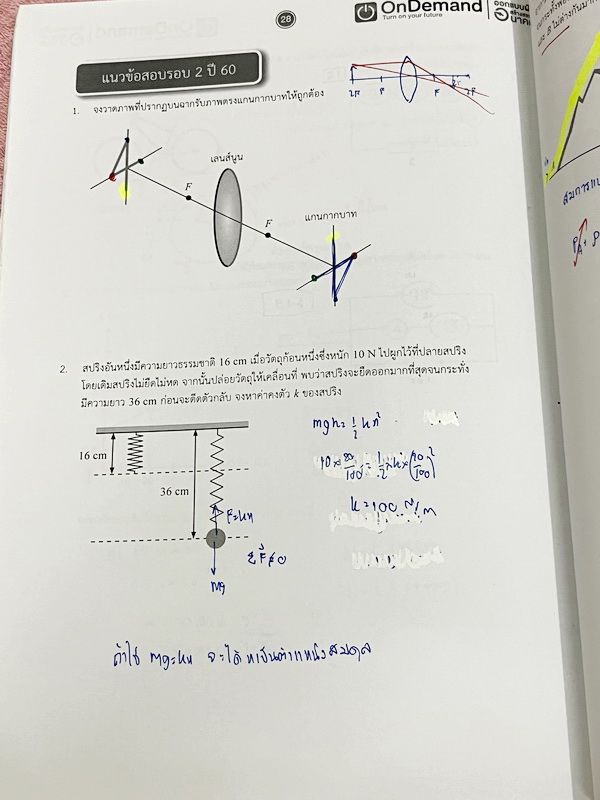 28
OnDemand
Turn on your future
แนวข้อสอบรอบ 2 ปี 60
1. จงวาดภาพที่ปรากฏบนฉากรับภาพตรงแกนกากบาทให้ถูกต้อง
2F F F 2F
เลนส์นูน
F
F
แกนกากบาท
2. สปริงอันหนึ่งมีความยาวธรรมชาติ 16 cm เมื่อวัตถุก้อนหนึ่งซึ่งหนัก 10 N ไปผูกไว้ที่ปลายสปริง
โดยเดิมสปริงไม่ยืดไม่หด จากนั้นปล่อยวัตถุให้เคลื่อนที่ พบว่าสปริงจะยืดออกมากที่สุดจนกระทั่ง
มีความยาว 36 cm ก่อนจะดีดตัวกลับ จงหาค่าคงตัว k ของสปริง
16 cm
36 cm
mgh = 1/2 kx²
10 × 20/100 = 1/2 × k × (20/100)²
k = 100 N/m
F = kx
ΣF ≠ 0
mg
ถ้าใช้ mg = kx จะได้ xเป็นตำแหน่งสมดุล
สมการแ
P_A + P